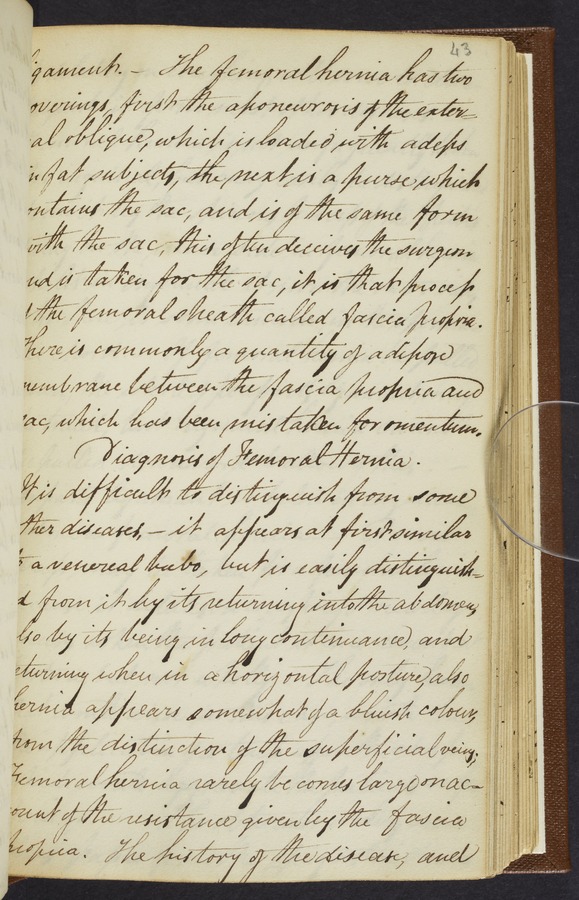 43
igament. – The femoral hernia has two
overings, first the aponeurosis of the exter=
al oblique, which is loaded with adeps
in fat subjects, the next is a purse, which
ontains the sac, and is of the same form
with the sac, this often deceives the surgeon
nd, is taken for the sac, it is that process
f the femoral sheath called fascia propria.
There is commonly a quantity of adipose
membrane between the fascia propria and
sac, which has been mistaken for omentum.
Diagnosis of Femoral Hernia.
It is difficult to distinguish from some
ther diseases, – it appears at first similar
to a venereal bubo, but is easily distinguish=
d from it by its returning into the abdomen,
lso by its being in long continuance, and
eturning when in a horizontal posture, also
hernia appears somewhat of a bluish colour,
from the distinction of the superficial veins,
Femoral hernia rarely becomes large on ac=
ount of the resistance given by the fascia
propria. The history of the disease, and